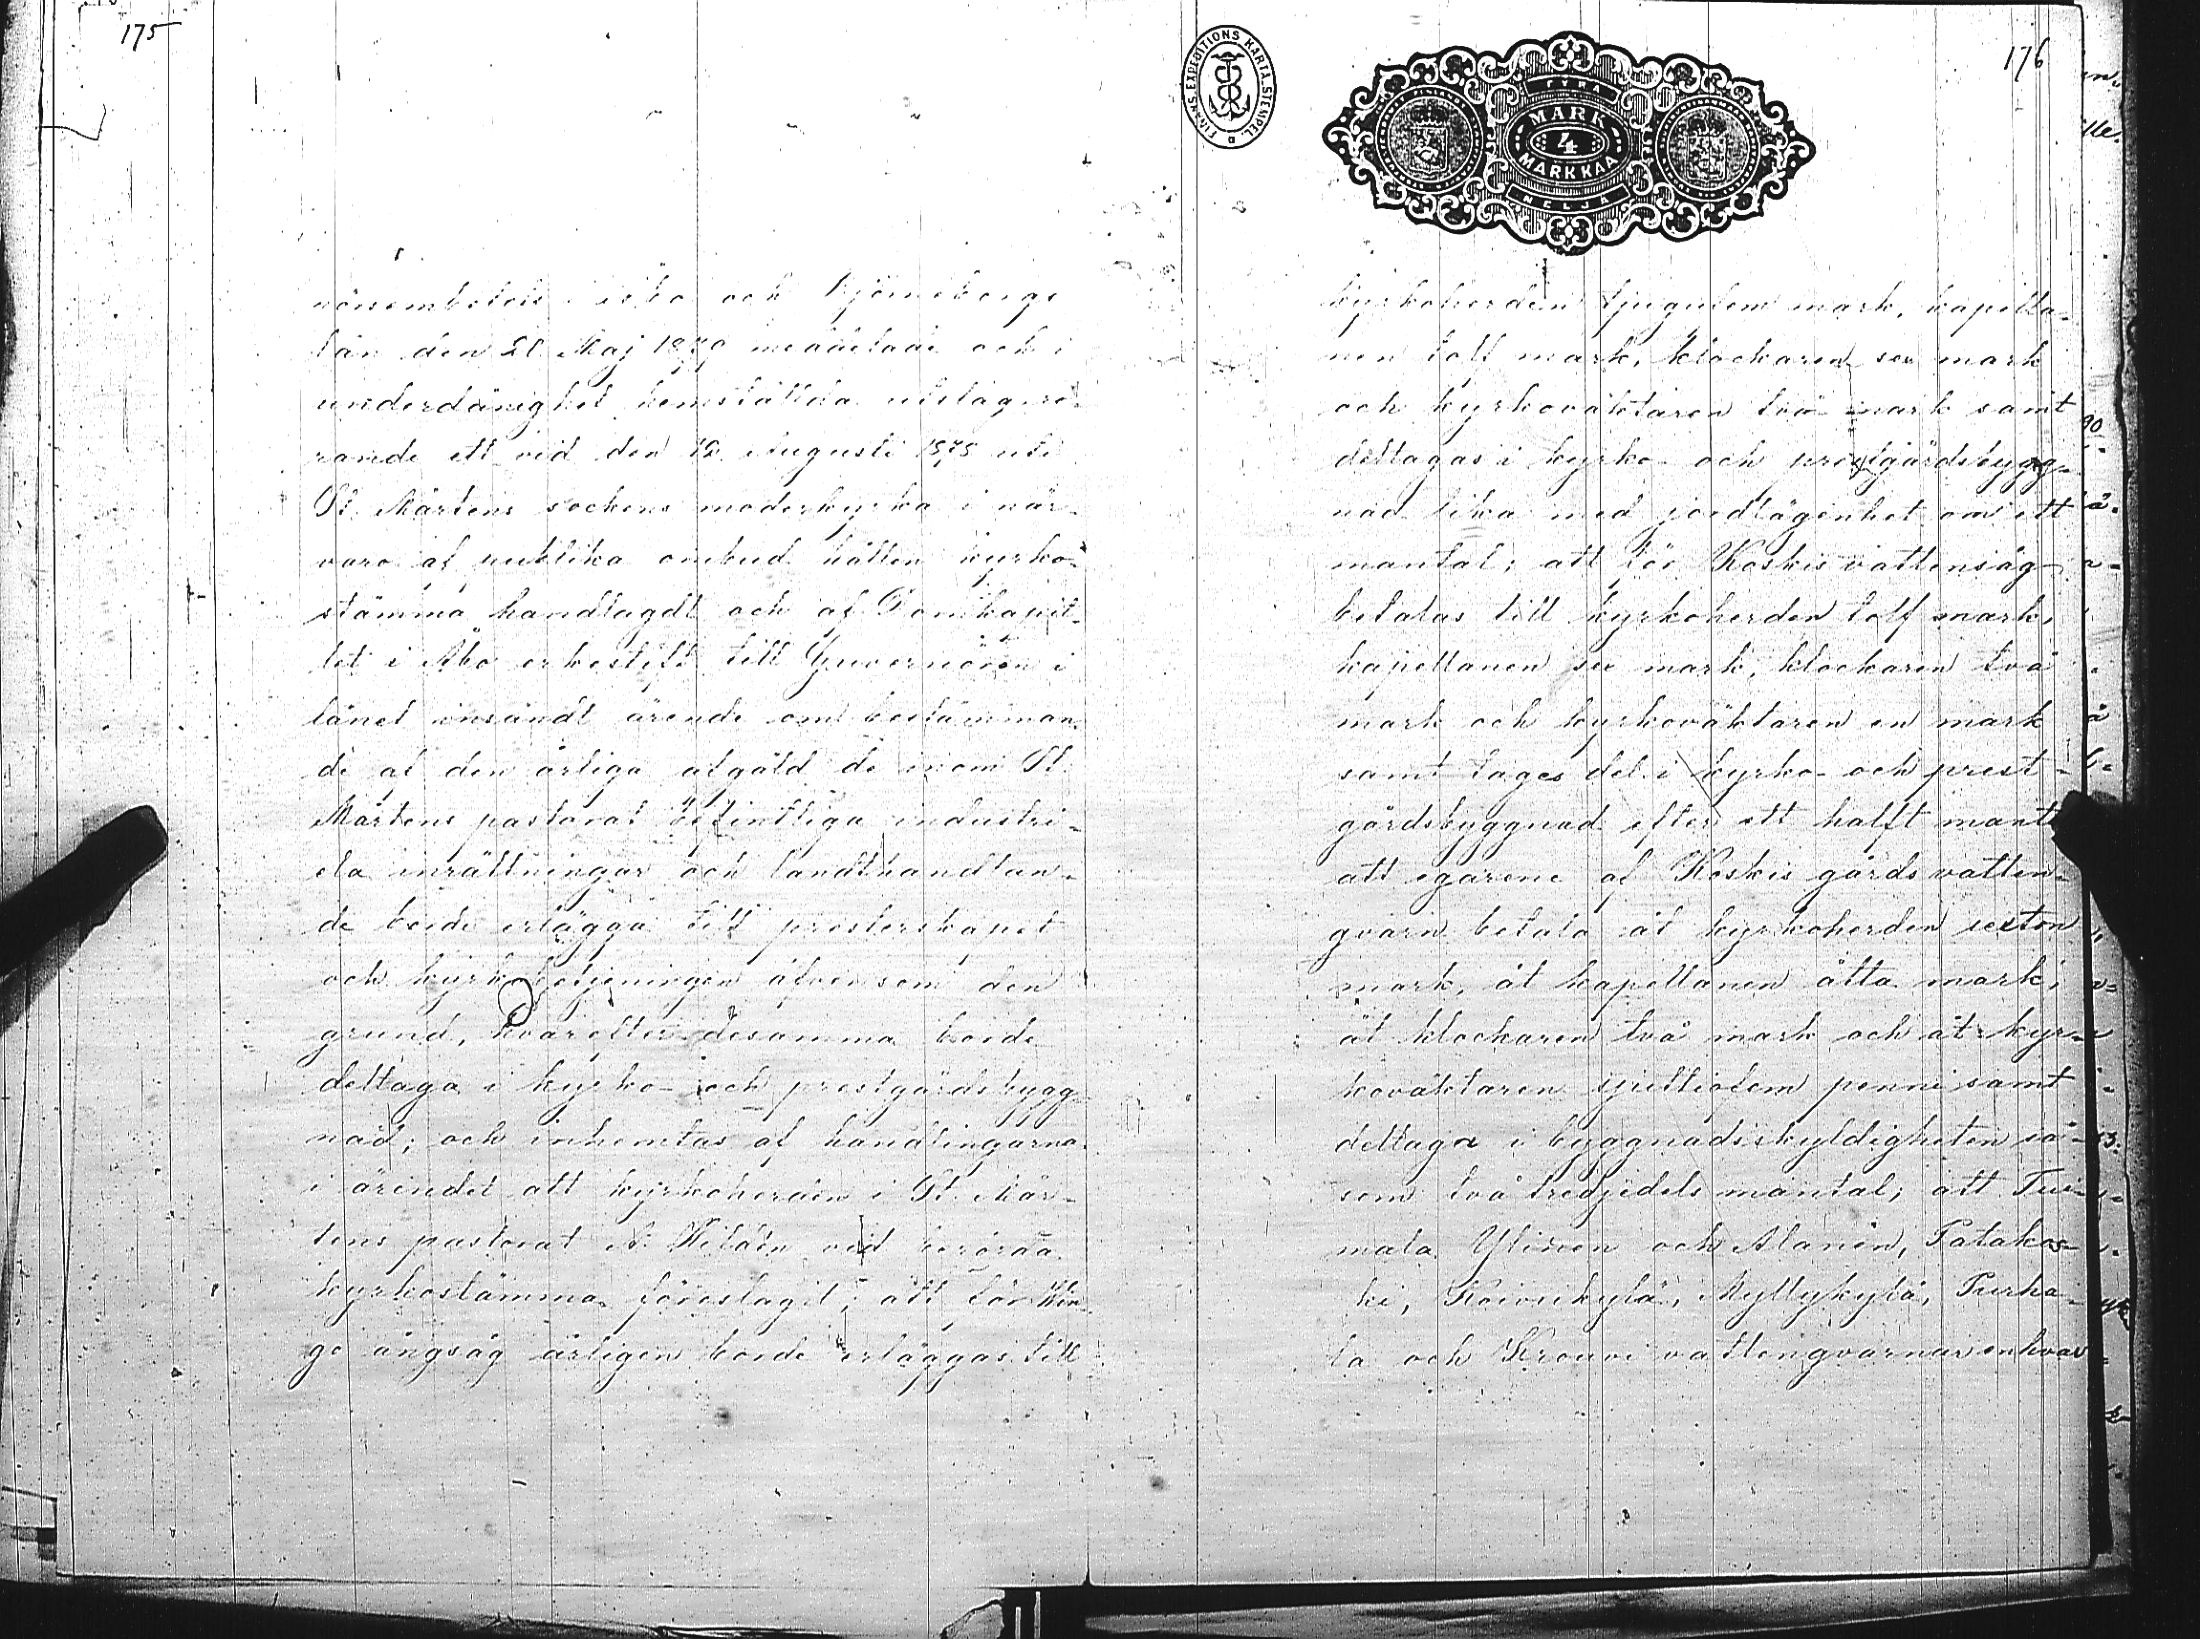 175
nörsembetets i Åbo och Björneborgs
län den 21 Maj 1879 meddelade och i
underdånighet hemstälda utslag rö-
rande ett vid den 12 Augusti 1875 uti
St. Mårtens sockens moderkyrka i när-
varo af publika ombud hållen kyrko-
stämma handlagdt och af Domkapit-
let i Åbo erkestift till Guvernören i
länet insändt ärende om bestämman-
de af den årliga afgäld de inom St.
Mårtens pastorat befintliga industri-
ela inrättningar och landthandlan-
de borde erlägga till presterskapet
och kyrkobetjeningen äfvensom den
grund, hvarefter desamma borde
deltaga i kyrko- och prestgårdsbygg-
nad; och inhemtas af handlingarna
i ärendet att kyrkoherden i St. Mår-
tens pastorat A. Helén vid berörda
kyrkostämma föreslagit; att för
ge ångsåg årligen borde erläggas till
176
FINANS EXPEDITIONS KARTA STEMPEL
FYRA
MARK
4
MARKKAA
NELJÄ
kyrkoherden tjugufem mark, kapella-
nen tolf mark, klockaren sex mark
och kyrkoväktaren två mark samt
deltagas i kyrko- och prestgårdsbygg-
nad lika med jordlägenhet om ett
mantal; att för Koskis vattensåg
betalas till kyrkoherden tolf mark,
kapellanen sex mark, klockaren två
mark och kyrkoväktaren en mark
samt tages del i kyrko- och prest-
gårdsbyggnad efter ett halft mant
att egarene af Koskis gårds vatten-
qvarn betala åt kyrkoherden sexton
mark, åt kapellanen åtta mark,
åt klockaren två mark och åt kyr-
koväktaren sjuttiofem penni samt
deltaga i byggnadsskyldigheten så-
som två tredjedels mantal; att Tui-
mala Ylinen och Alanen, Patakos-
ki, Koivukylä, Myllykylä, Purha-
la och Krouvi vattenqvarnar enhvar